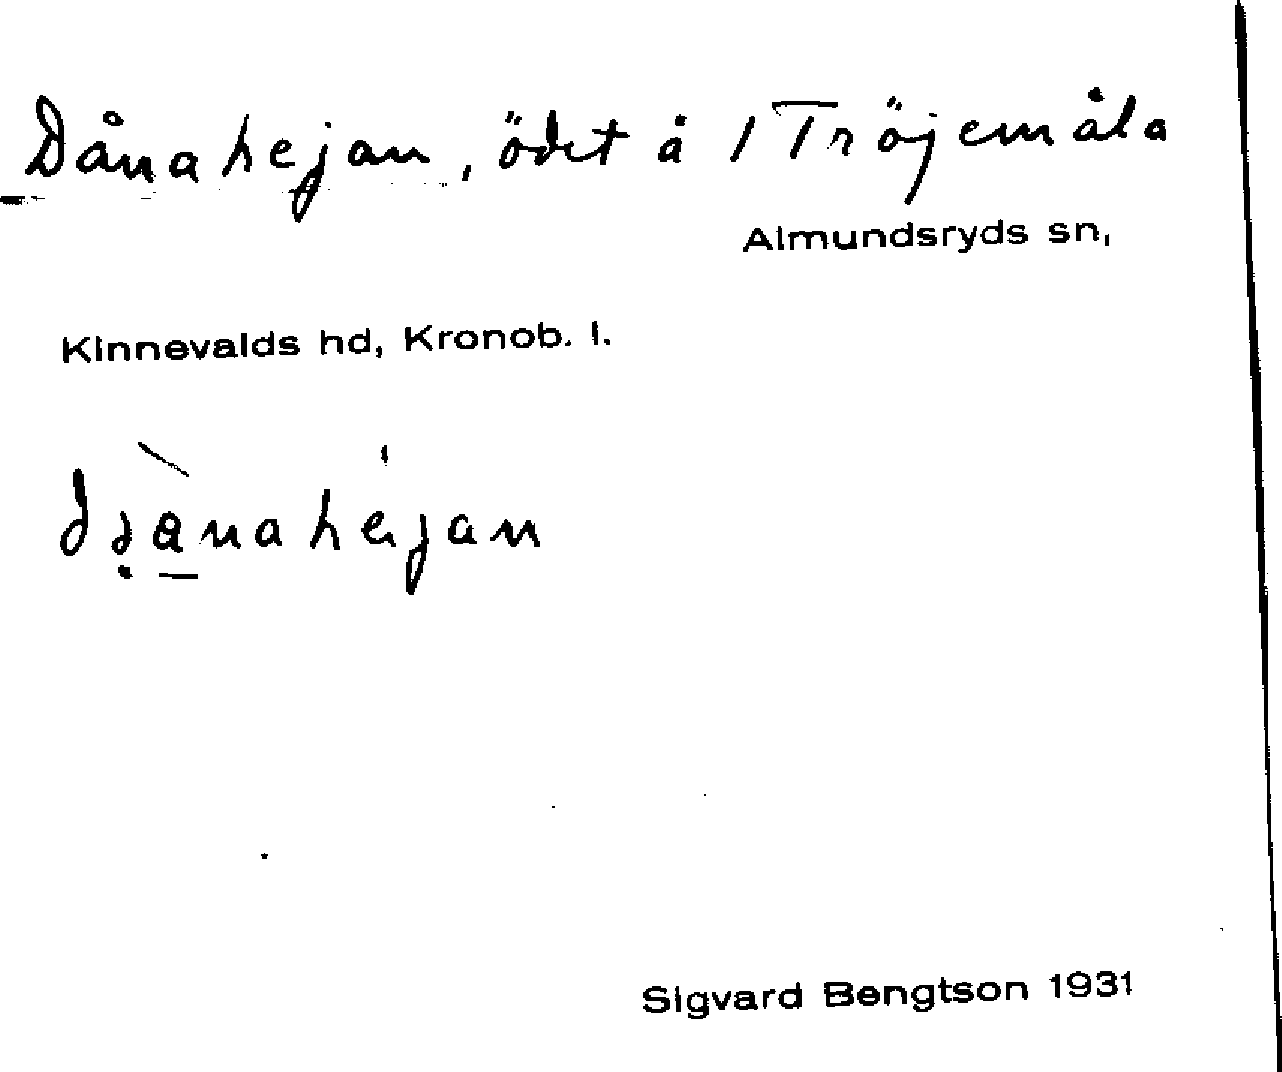 Dånahejan, ödet å 1 Tröjemåla
Almundsryds sn,
Kinnevalds hd, Kronob. l.
Sigvard Bengtson 1931